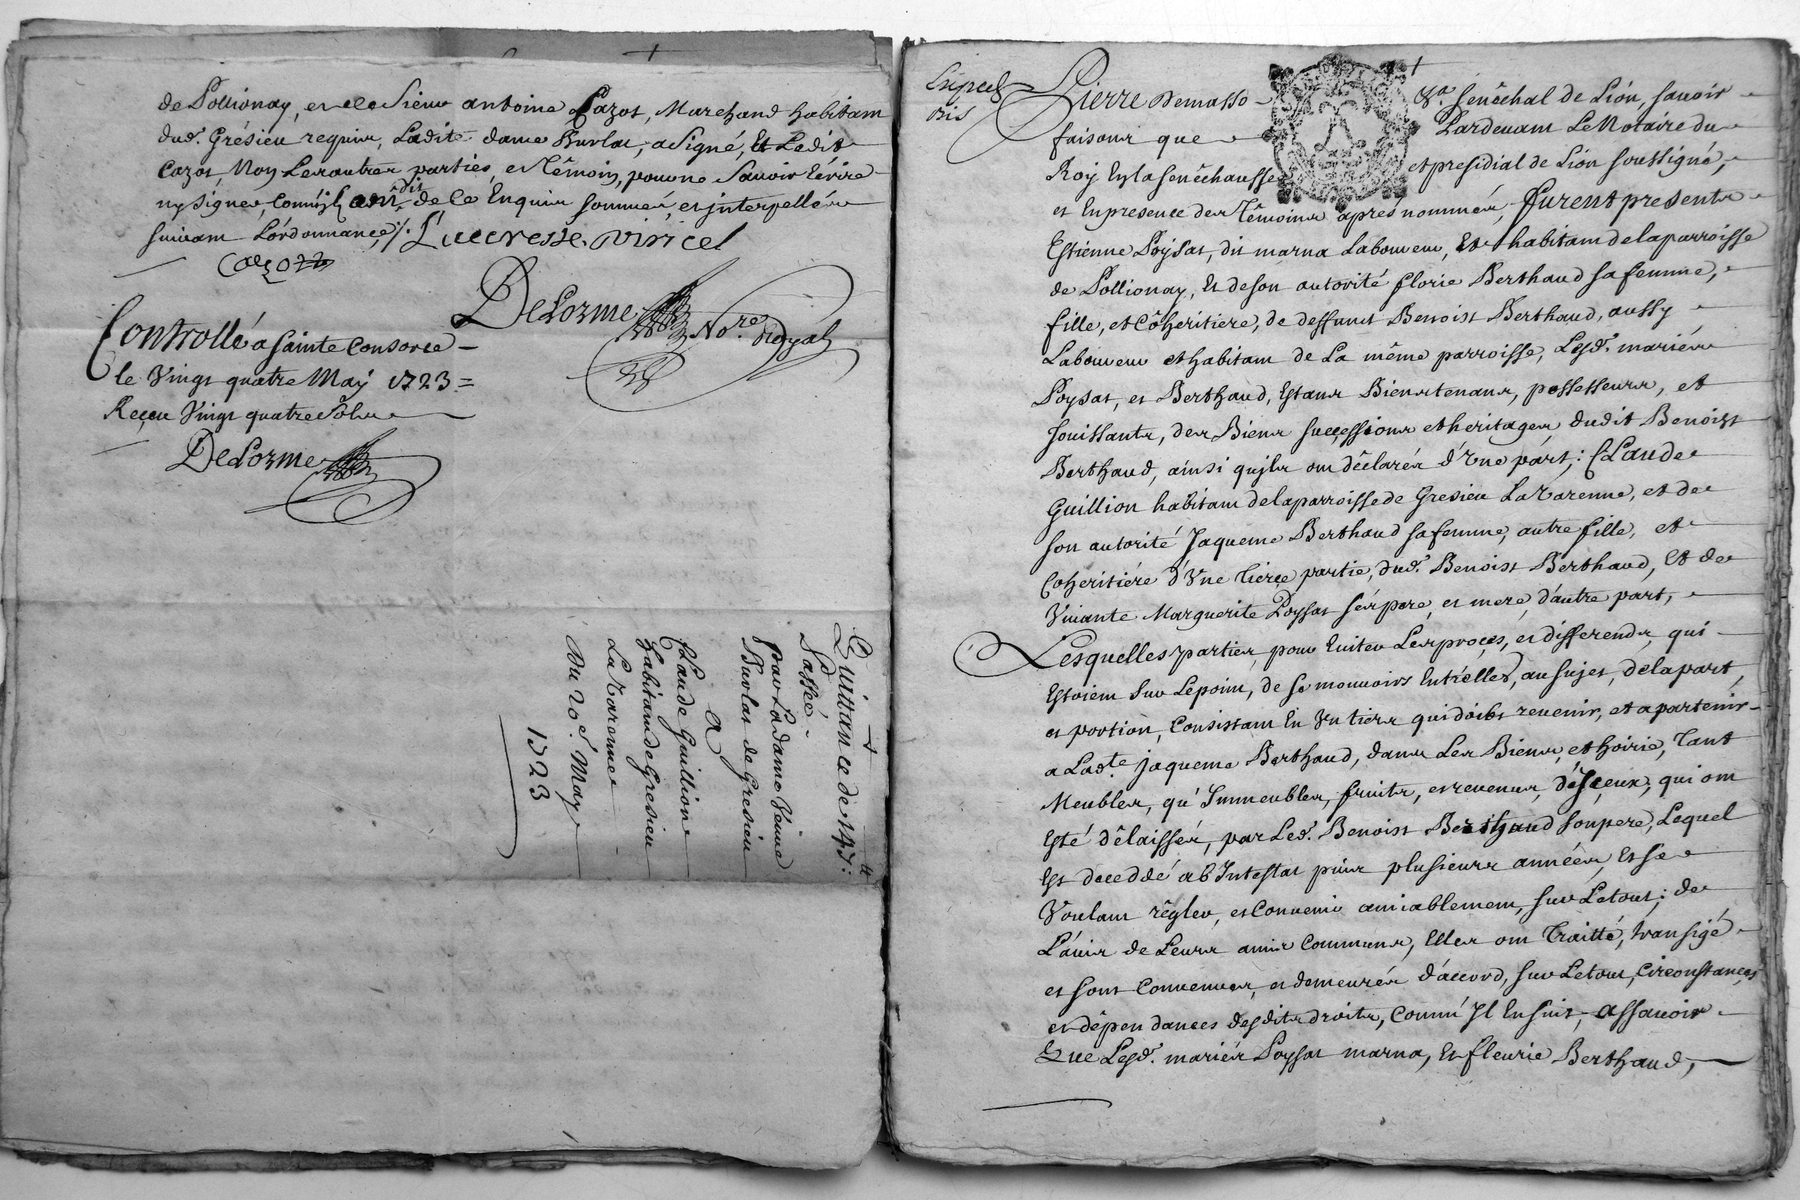 de Pollionay, et de Sieur antoine Cazot, Marchand habitant
dud. Grésieu requis, Ladite dame Burlat, a Signé, Et Ledit
Cazot, Non Lesautres parties, et Témoin, pour ne Savoir Ecrire
ny signer, Comm'jls ont dit de Ce Enquis Sommés, et jnterpellés
suivant L'ordonnance ·/· Lucresse viricel
Cazot
DeLorme No.re Royal
Controllé a Sainte Consorce
le Vingt quatre May 1723 =
Reçeu Vingt quatre Sols
DeLorme
Quittance de 147:
Passée
par La dame Veuve
Burlat de Gresieu
A
Claude Guillion
habitant de Gresieu
La Varenne
Du 20e. May
1723
Expeds
Bis
Pierre Demasso Sr. Senêchal de Lión, savoir
faisons que Pardevant Le Notaire du
Roy En la senêchaussée et presidial de Lión soussigné,
et En presence des Têmoins aprés nommés, furent presents
Estienne Poysat, dit marna Laboureur, Et habitant de la parroisse
de Pollionay, Et de son autorité florie Berthaud sa femme,
fille, et Côheritiere, de deffunct Benoist Berthaud, aussy
Laboureur et habitant de La même parroisse, Lesd. mariés
Poysat, et Berthaud, Estans Bienstenans, possesseurs, et
Jouissants, des Biens successions et heritages dudit Benoist
Berthaud, ainsi qu'jls ont dêclarés d'Une párt; Claude
Guillion habitant de la parroisse de Gresieu La Varenne, et de
son autorité Jaqueme Berthaud sa femme, autre fille, et
Coheritiére d'Une Tierçe partie, dud. Benoist Berthaud, Et de
Vivante Marguerite Poysat ses pere, et mere, d'autre part,
Lesquelles parties, pour Eviter Les proçes, et differends, qui
Estoient Sur Le point, de Se mouvoirs Entr'elles, au sujet, de la part,
et portion, Consistant En Un tiers qui doibt revenir, et apartenir
a Lad.te jaqueme Berthaud, dans Les Biens, et hoirie, Tant
Meubles, qu'Immeubles, fruits, et revenus, d'Iceux, qui ont
Esté dêlaissés, par Led. Benoist Berthaud son pere, Lequel
Est decedé ab Intestat puis plusieurs années, Et Se
Voulant rêgler, et Convenir amiablement, sur Le tout; de
L'avis de Leurs amis Communs, Elles ont Traitté, transigé
et sont Convenues, et demeurés d'accord, sur Le tout, Circonstances
et dêpendances desdits droits, Comm' Il Ensuit, assavoir
Que Lesd. mariés Poysat marna, Et fleurie Berthaud,